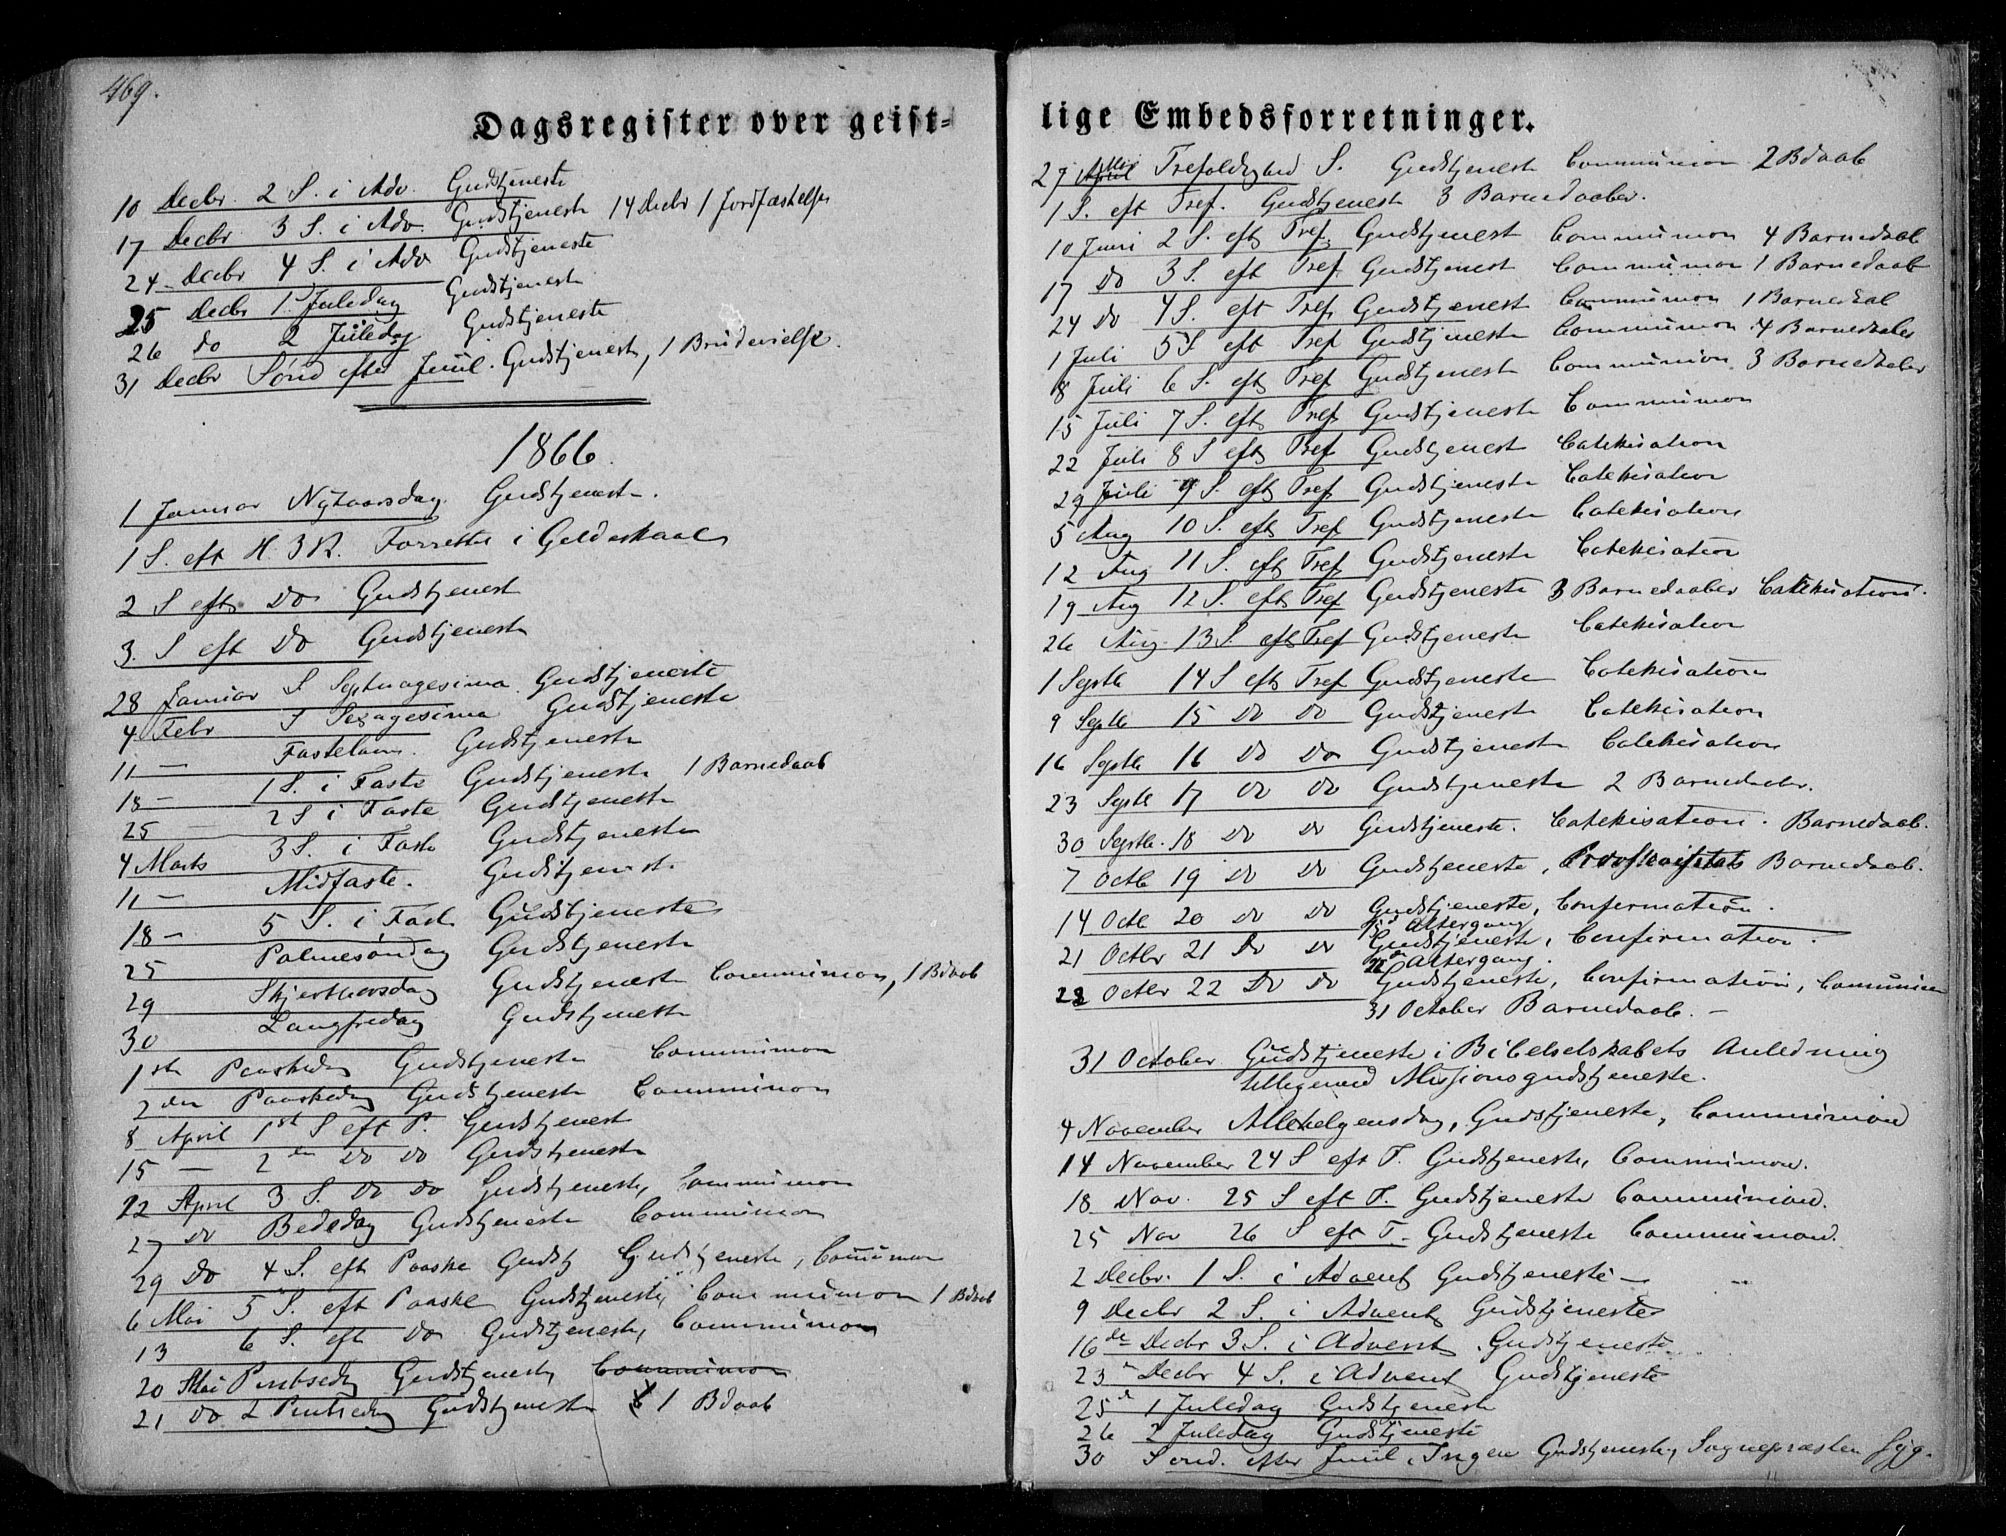 469.
Dagsregister over geist-
10 Decbr. 2 S. i Adv. Gudstjeneste
17 Decbr 3 S. i Adv. Gudstjeneste 14 Decbr 1 Jordfæstelse
24 Decbr 4 S. i Adv Gudstjeneste
25 Decbr 1. Juledag Gudstjeneste
26 do 2 Juledag Gudstjeneste
31 Decbr Sønd efter Juul. Gudstjeneste, 1 Brudevielse.
1866.
1 Januar Nytaarsdag. Gudstjeneste.
1 S. eft H. 3 K. Forrettes i Gildeskaal
2 S eft Do Gudstjenest
3. S eft Do Gudstjeneste
28 Januar S Septuagesima Gudstjeneste
4 Febr S Sexagesima Gudstjeneste
11 — Fastelavn. Gudstjeneste
18 — 1 S. i Faste Gudstjeneste 1 Barnedaab
25 — 2 S i Faste Gudstjeneste
4 Marts 3 S. i Faste Gudstjeneste
11 — Midfaste. Gudstjeneste
18 — 5 S. i Faste Gudstjeneste
25 Palmesøndag Gudstjeneste
29 Skjertorsdag Gudstjeneste Communion, 1 Bdaab
30 Langfredag Gudstjeneste
1ste Paaskedag Gudstjeneste Communion
2den Paaskedag Gudstjeneste Communion
8 April 1st S eft P. Gudstjenest
15 — 2den Do Do Gudstjeneste
22 April 3 S. Do Do Gudstjeneste, Communion
27 do Bededag Gudstjeneste Communion
29 Do 4 S. eft Paaske Gudstj Gudstjeneste, Communion
6 Mai 5 S. eft Paaske Gudstjeneste, Communion 1 Bdaab
13 6 S. eft Do Gudstjeneste, Communion
20 Mai Pintsedg Gudstjeneste, Communion
21 do 2 Pintsedag Gudstjeneste 1 Bdaab
lige Embedsforretninger.
27 April Mai Trefoldighed S. Gudstjeneste Communion 2 Bdaab
1 S. eft Tref. Gudstjeneste 3 Barnedaaber.
10 Juni 2 S. eft Tref. Gudstjenest Communion 4 Barnedaab
17 Do 3 S. eft Tref Gudstjenest Communion 1 Barnedaab
24 Do 4 S. eft Tref. Gudstjenest Communion 1 Barnedaab
1 Juli 5 S eft Tref Gudstjeneste Communion 4 Barnedaaber
8 Juli 6 S. eft Tref Gudstjeneste Communion 3 Barnedaaber
15 Juli 7 S. eft Tref Gudstjeneste Communion
22 Juli 8 S eft Tref Gudstjenest Catekisation
29 Juli 9 S. eft Tref Gudstjeneste Catekisation
5 Aug 10 S. eft Tref Gudstjeneste Catekisation
12 Aug 11 S. eft Tref Gudstjeneste Catekisation
19 Aug 12 S. eft Tref Gudstjeneste 3 Barnedaaber Catekisation.
26 Aug. 13 S. eft Tref Gudstjeneste Catekisation
1 Septb 14 S eft Tref Gudstjeneste Catekisation
9 Septb 15 do do Gudstjeneste Catekisation
16 Septb 16 Do Do Gudstjeneste Catekisation
23 Septb 17 do do Gudstjeneste 2 Barnedaaber.
30 Septb. 18 Do Do Gudstjeneste. Catekisation. Barnedaab.
7 Octb 19 Do Do Gudstjeneste, Provstevisitats Barnedaab.
14 Octb 20 Do Do Gudstjeneste, Confermation.
Altergang
21 Octbr 21 Do Do Gudstjeneste, Confirmation.
Altergang.
28 Octbr 22 Do Do Gudstjeneste, Confirmation, Comunion
31 October Barnedaab. —
31 October Gudstjeneste i Bibelselskabets Anledning
tilligemed Missionsgudstjeneste.
4 November Allehelgensdag, Gudstjeneste, Communion
14 November 24 S eft T. Gudstjeneste, Communion.
18 Nov. 25 S eft T. Gudstjeneste Communion.
25 Nov 26 S eft T. Gudstjeneste Communion.
2 Decbr. 1 S. i Advent Gudstjeneste —
9 Decbr 2 S. i Advent Gudstjeneste
16de Decbr 3 S. i Advent. Gudstjeneste
23 Decbr 4 S. i Advent Gudstjeneste
25d 1 Juledag Gudstjeneste
26 2 Juledag Gudstjeneste
30 Sønd. efter Juul, Ingen Gudstjeneste, Sognepræsten syg.